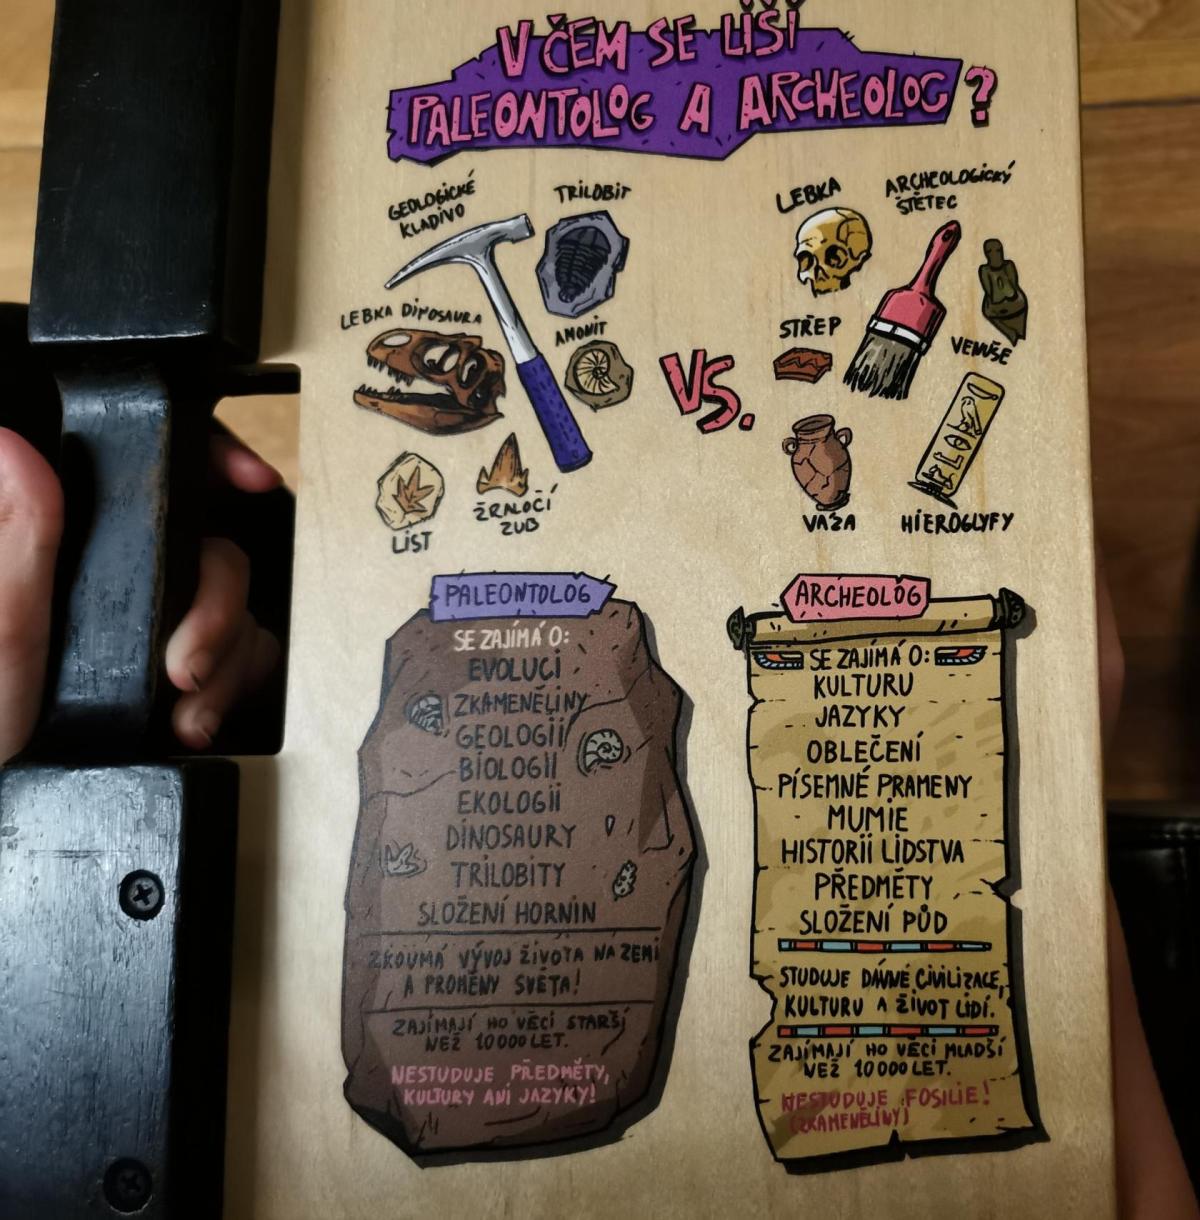 V ČEM SE LIŠÍ
PALEONTOLOG A ARCHEOLOG?
GEOLOGICKÉ
KLADIVO
TRILOBIT
LEBKA DINOSAURA
AMONIT
LIST
ŽRALOČÍ
ZUB
VS.
LEBKA
ARCHEOLOGICKÝ
ŠTĚTEC
STŘEP
VENUŠE
VÁZA
HIEROGLYFY
PALEONTOLOG
SE ZAJÍMÁ O:
EVOLUCI
ZKAMENĚLINY
GEOLOGII
BIOLOGII
EKOLOGII
DINOSAURY
TRILOBITY
SLOŽENÍ HORNIN
ZKOUMÁ VÝVOJ ŽIVOTA NA ZEMI
A PROMĚNY SVĚTA!
ZAJÍMAJÍ HO VĚCI STARŠÍ
NEŽ 10 000 LET.
NESTUDUJE PŘEDMĚTY,
KULTURY ANI JAZYKY!
ARCHEOLOG
SE ZAJÍMÁ O:
KULTURU
JAZYKY
OBLEČENÍ
PÍSEMNÉ PRAMENY
MUMIE
HISTORII LIDSTVA
PŘEDMĚTY
SLOŽENÍ PŮD
STUDUJE DÁVNÉ CIVILIZACE,
KULTURU A ŽIVOT LIDÍ.
ZAJÍMAJÍ HO VĚCI MLADŠÍ
NEŽ 10 000 LET.
NESTUDUJE FOSILIE!
(ZKAMENĚLINY)